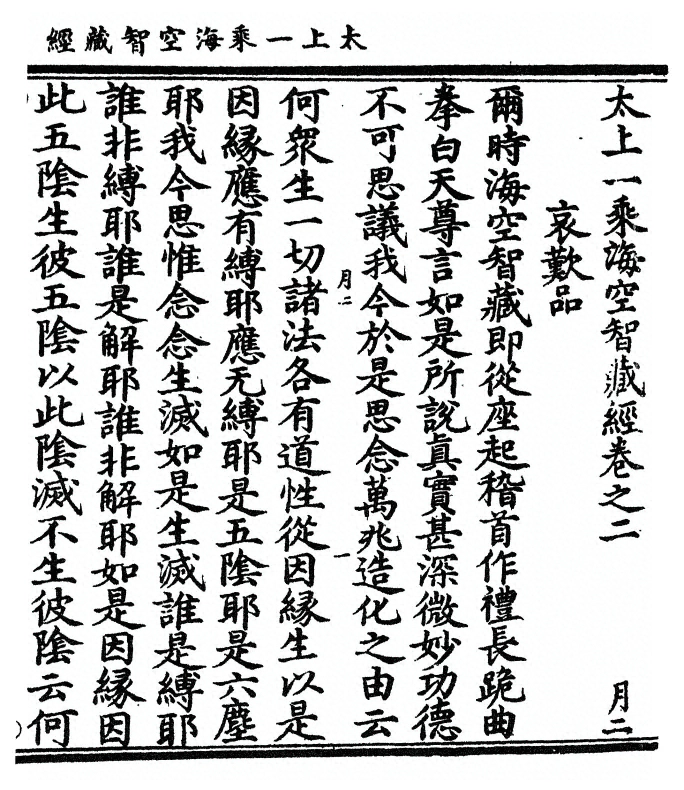 太上一乘海空智藏經
太上一乘海空智藏經卷之二　月二
哀歎品
爾時海空智藏即從座起稽首作禮長跪曲
拳白天尊言如是所說眞實甚深微妙功德
不可思議我今於是思念萬兆造化之由云
月二　一
何衆生一切諸法各有道性從因緣生以是
因緣應有縛耶應无縛耶是五陰耶是六塵
耶我今思惟念念生滅如是生滅誰是縛耶
誰非縛耶誰是解耶誰非解耶如是因緣因
此五陰生彼五陰以此陰滅不生彼陰云何